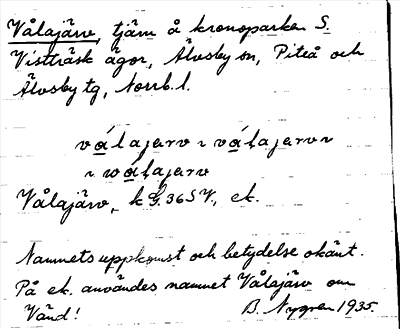 Vålajärv, tjärn å kronoparken S.
Vistträsk ägor, Älvsby sn, Piteå och
Älvsby tg, Norrb. l.
vålajarv ı vålajarvı
ı wålajarv
Vålajärv, k G. 365 V, ek.
Namnets uppkomst och betydelse okänt.
På ek. användes namnet Vålajärv om
Vänd! B. Nygren 1935.